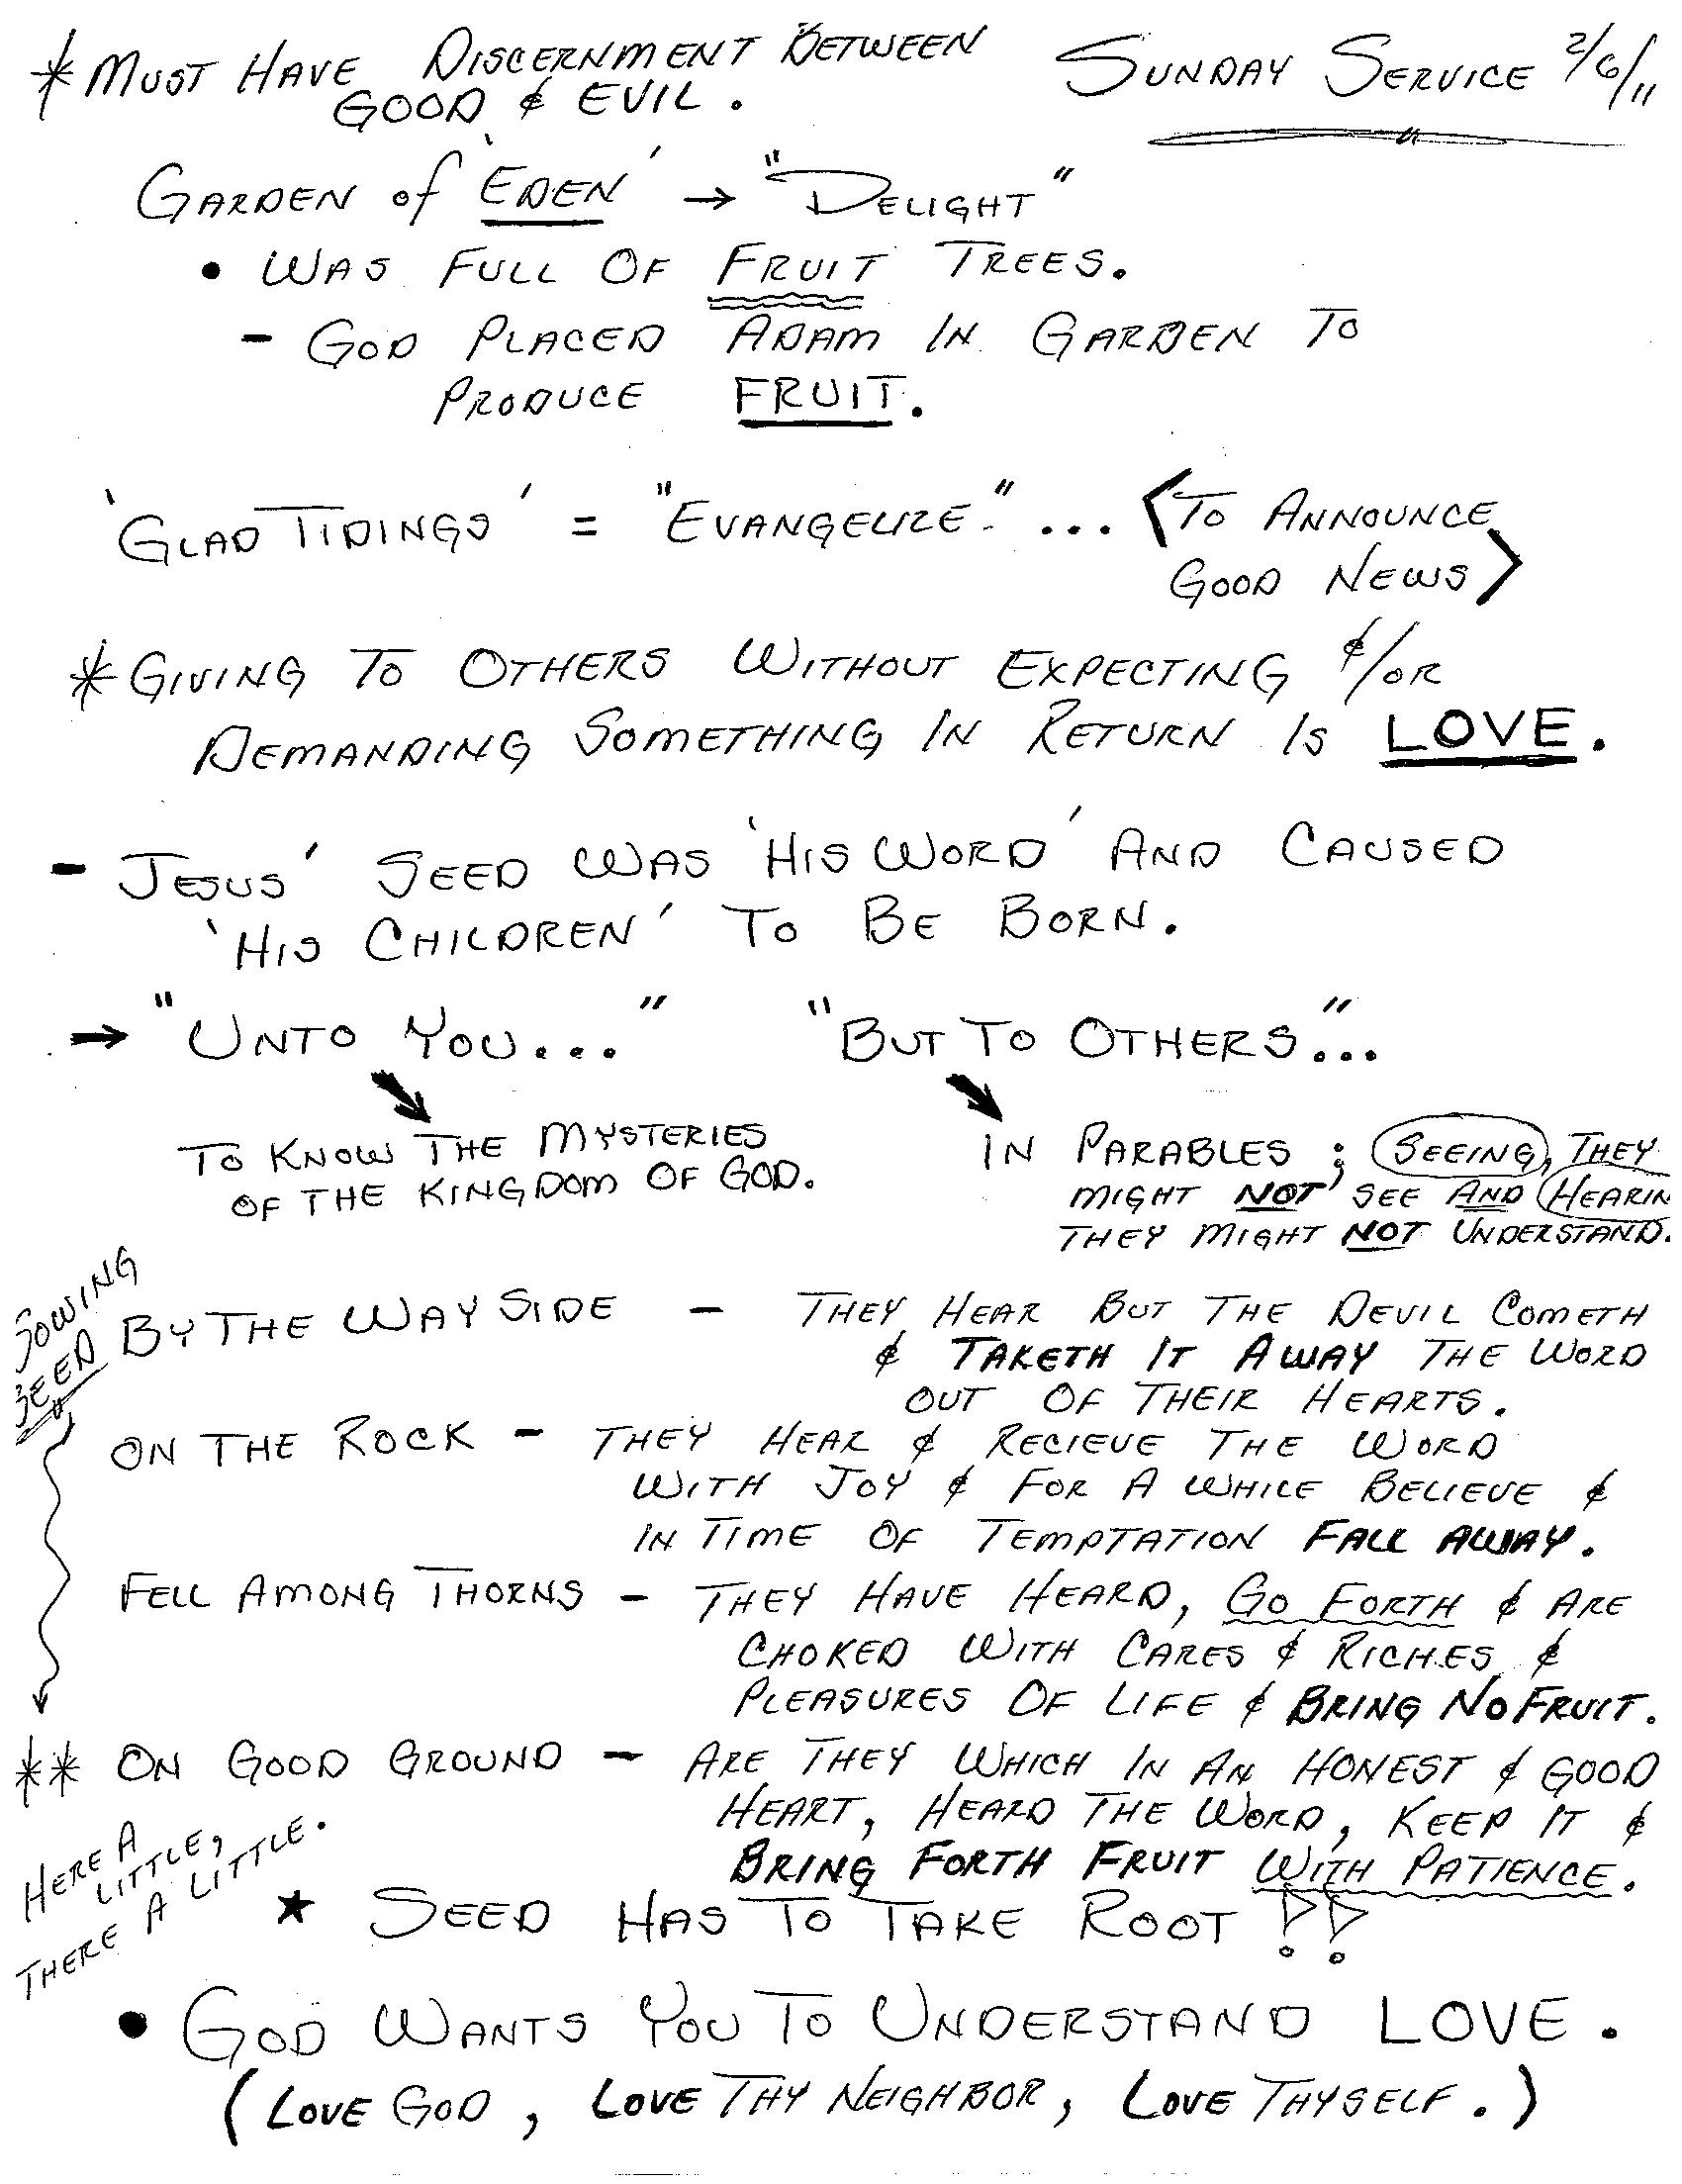 * MUST HAVE DISCERNMENT BETWEEN
GOOD & EVIL.
SUNDAY SERVICE 2/6/11
GARDEN of 'EDEN' → "DELIGHT"
• WAS FULL OF FRUIT TREES.
- GOD PLACED ADAM IN GARDEN TO
PRODUCE FRUIT.
'GLAD TIDINGS' = "EVANGELIZE" ... <TO ANNOUNCE
GOOD NEWS>
* GIVING TO OTHERS WITHOUT EXPECTING &/OR
DEMANDING SOMETHING IN RETURN IS LOVE.
- JESUS' SEED WAS 'HIS WORD' AND CAUSED
'HIS CHILDREN' TO BE BORN.
→ "UNTO YOU..." "BUT TO OTHERS"...
TO KNOW THE MYSTERIES
OF THE KINGDOM OF GOD.
IN PARABLES; SEEING, THEY
MIGHT NOT SEE AND HEARIN
THEY MIGHT NOT UNDERSTAND.
SOWING
SEED
BY THE WAY SIDE - THEY HEAR BUT THE DEVIL COMETH
& TAKETH IT AWAY THE WORD
OUT OF THEIR HEARTS.
ON THE ROCK - THEY HEAR & RECIEVE THE WORD
WITH JOY & FOR A WHILE BELIEVE &
IN TIME OF TEMPTATION FALL AWAY.
FELL AMONG THORNS - THEY HAVE HEARD, GO FORTH & ARE
CHOKED WITH CARES & RICHES &
PLEASURES OF LIFE & BRING NO FRUIT.
** ON GOOD GROUND - ARE THEY WHICH IN AN HONEST & GOOD
HEART, HEARD THE WORD, KEEP IT &
BRING FORTH FRUIT WITH PATIENCE.
HERE A
LITTLE,
THERE A LITTLE.
★ SEED HAS TO TAKE ROOT !!
• GOD WANTS YOU TO UNDERSTAND LOVE.
(LOVE GOD, LOVE THY NEIGHBOR, LOVE THYSELF.)